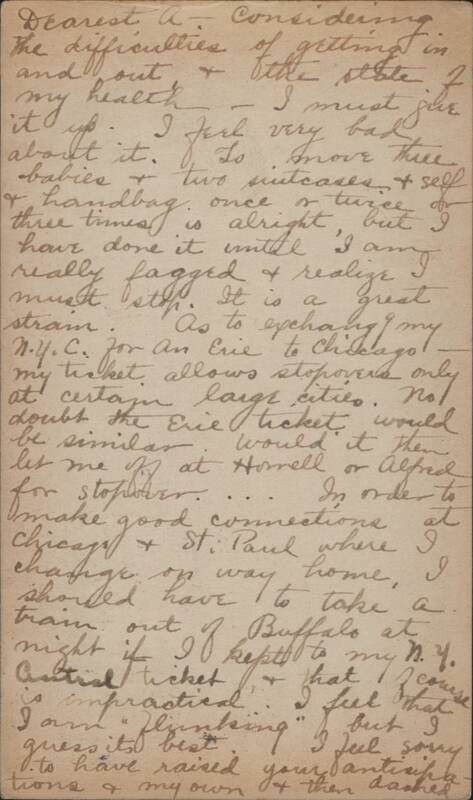 Dearest A - Considering
the difficulties of getting in
and out, & the state of
my health - I must give
it up. I feel very bad
about it. To move three
babies & two suitcases & self
& handbag once or twice or
three times is alright, but I
have done it until I am
really fagged & realize I
must stop. It is a great
strain. As to exchang'g my
N.Y.C. for an Erie to Chicago -
my ticket allows stopovers only
at certain large cities. No
doubt the Erie ticket would
be similar. Would it then
let me off at Hornell or Alfred
for stopover. . . . In order to
make good connections at
Chicago & St. Paul where I
change on way home, I
should have to take a
train out of Buffalo at
night if I kept to my N.Y.
Central ticket & that of course
is impractical. I feel that
I am "flunking" but I
guess its best. I feel sorry
to have raised your antisipa-
tions & my own & then dashed